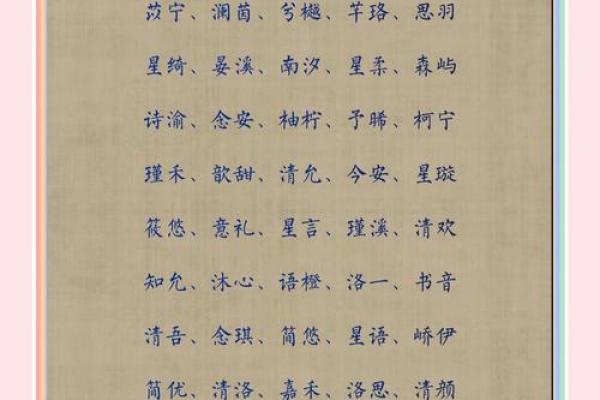 苡宁、澜茵、兮樾、芊珞、思羽
星绮、晏溪、南汐、星柔、森屿
诗渝、念安、柚柠、予晞、柯宁
瑾禾、歆甜、清允、今安、星璇
筱悠、意礼、星言、瑾溪、清欢
知允、沐心、语橙、洛一、书音
清吾、念琪、简悠、星语、峤伊
简优、清洛、嘉禾、洛思、清颜